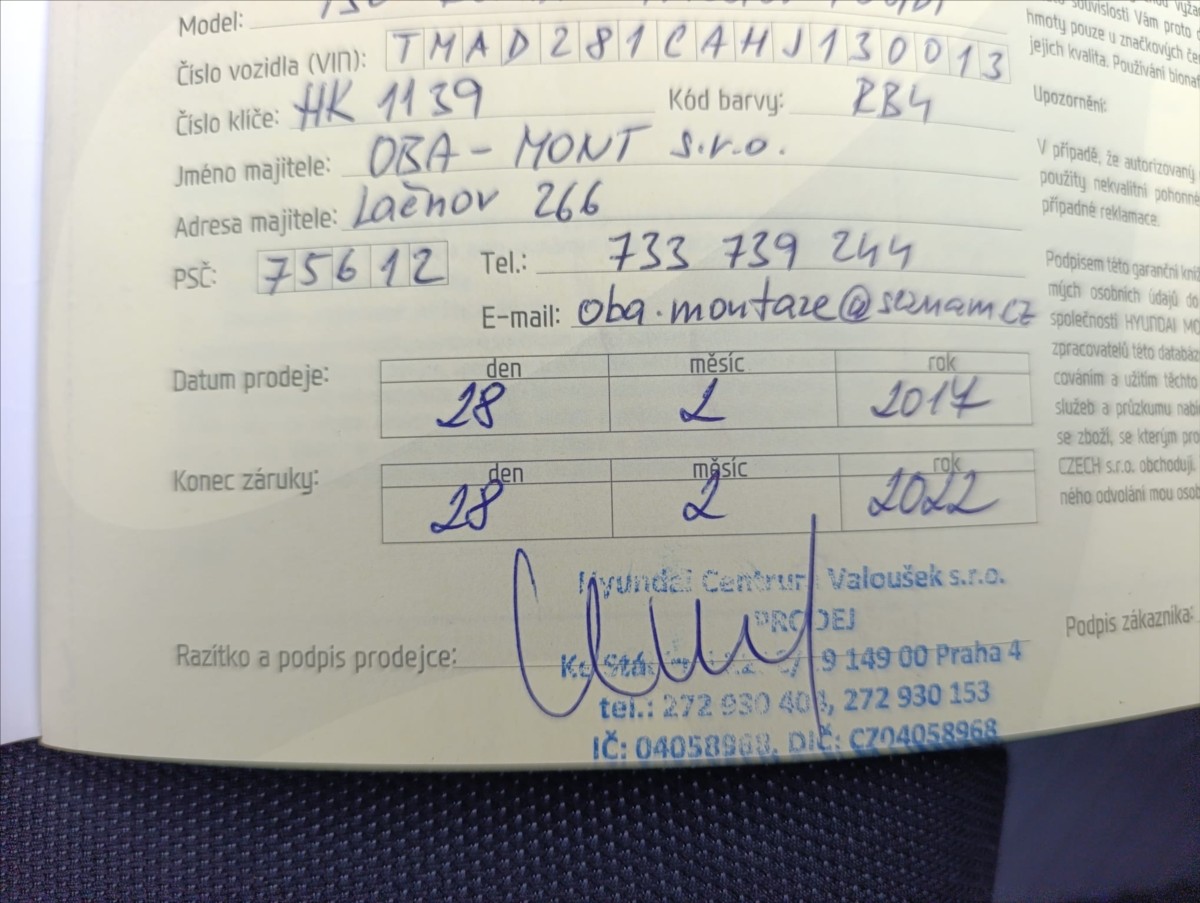 Model:
Číslo vozidla (VIN): TMAD281CAHJ130013
Číslo klíče: HK 1139 Kód barvy: RB4
Jméno majitele: OBA - MONT s.r.o.
Adresa majitele: Lačnov 266
PSČ: 75612 Tel.: 733 739 244
E-mail: oba.montaze@seznam.cz
den měsíc rok
Datum prodeje: 28 2 2017
den měsíc rok
Konec záruky: 28 2 2022
Hyundai Centrum Valoušek s.r.o.
PRODEJ
149 00 Praha 4
Razítko a podpis prodejce:
tel.: 272 930 403, 272 930 153
IČ: 04058968, DIČ: CZ04058968
souvislosti Vám proto
hmoty pouze u značkových
jejich kvalita. Používání
Upozornění:
V případě, že autorizovaný
použity nekvalitní
případné reklamace.
Podpisem této garanční
mých osobních údajů do
společnosti HYUNDAI
zpracovatelů této
cováním a užitím těchto
služeb a průzkumu
se zboží, se kterým
CZECH s.r.o. obchodují.
ného odvolání mou
Podpis zákazníka: